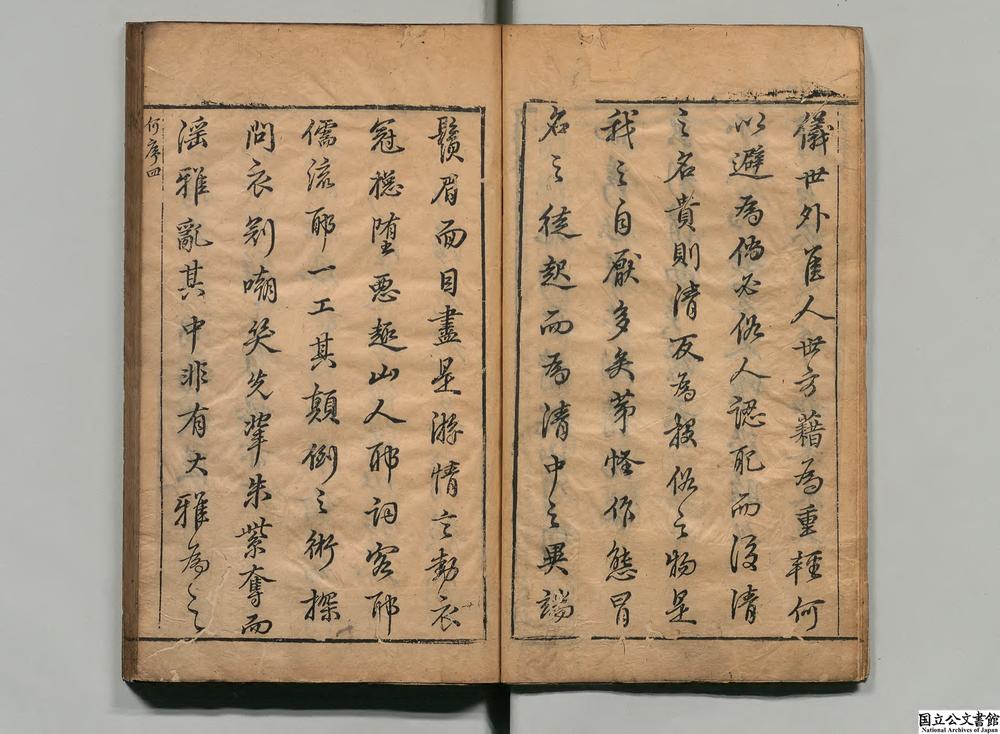 儀世外隹人世方藉為重輕何
以避為偽必俗人認耶而後清
之名貴則清反為投俗之物是
我之自厭多矣苐怪作態冒
名之徒起而為清中之異端
鬚眉面目盡是游情言動衣
冠穏堕惡趣山人耶詞客耶
儒流耶一工其顛倒之術探
問衣剝嘲笑先輩朱紫奪而
淫雅亂其中非有大雅為之
何序四
国立公文書館
National Archives of Japan